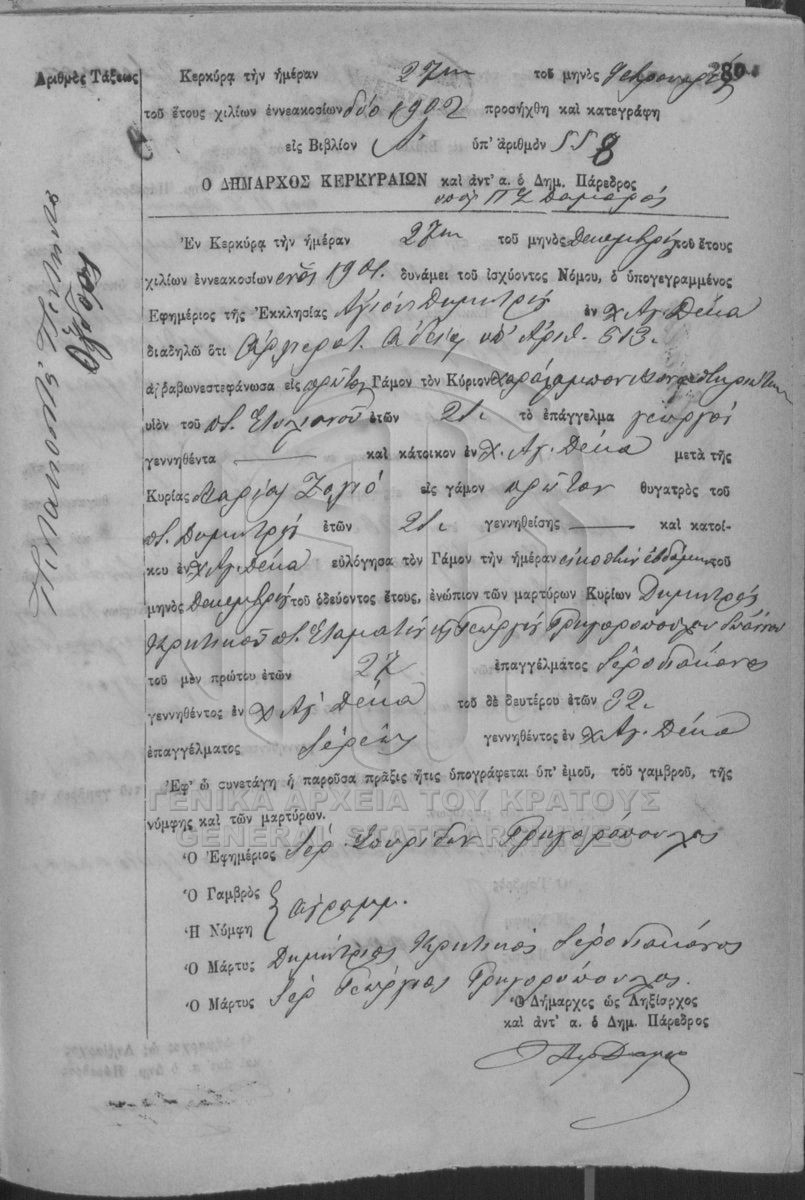 280
Ἀριθμὸς Τάξεως
Κερκύρᾳ τὴν ἡμέραν 27ην τοῦ μηνὸς
τοῦ ἔτους χιλίων ἐννεακοσίων δύο 1902 προσήχθη καὶ κατεγράφη
εἰς Βιβλίον ὑπ' ἀριθμὸν 558
Ο ΔΗΜΑΡΧΟΣ ΚΕΡΚΥΡΑΙΩΝ καὶ ἀντ' α. ὁ Δημ. Πάρεδρος
Ἐν Κερκύρᾳ τὴν ἡμέραν 27ην τοῦ μηνὸς Δεκεμβρίου τοῦ ἔτους
χιλίων ἐννεακοσίων ἑνός 1901. δυνάμει τοῦ ἰσχύοντος Νόμου, ὁ ὑπογεγραμμένος
Ἐφημέριος τῆς Ἐκκλησίας Ἁγίου Δημητρίου ἐν χ. Ἁγ. Δέκα
διαδηλῶ ὅτι Ἀρχιερατ. Ἀδείᾳ ὑπ' Ἀριθ. 513.
ἀῤῥαβωνεστεφάνωσα εἰς πρῶτον Γάμον τὸν Κύριον Χαράλαμπον
υἱὸν τοῦ ποτ. Στυλιανοῦ ἐτῶν 21. τὸ ἐπάγγελμα γεωργὸν
γεννηθέντα — καὶ κάτοικον ἐν χ. Ἁγ. Δέκα μετὰ τῆς
Κυρίας Μαρίας εἰς γάμον πρῶτον θυγατρὸς τοῦ
ποτ. Δημητρίου ἐτῶν 21. γεννηθείσης — καὶ κατοί-
κου ἐν χ. Ἁγ. Δέκα εὐλόγησα τὸν Γάμον τὴν ἡμέραν εἰκοστὴν ἑβδόμην τοῦ
μηνὸς Δεκεμβρίου τοῦ ὁδεύοντος ἔτους, ἐνώπιον τῶν μαρτύρων Κυρίων Δημητρίου
Κρητικοῦ ποτ. Σταματίου καὶ Γεωργίου Γρηγοροπούλου Ἰωάννου
τοῦ μὲν πρώτου ἐτῶν 27 ἐπαγγέλματος Ἱεροδιακόνου
γεννηθέντος ἐν χ. Ἁγ. Δέκα τοῦ δὲ δευτέρου ἐτῶν 32.
ἐπαγγέλματος Ἱερέως γεννηθέντος ἐν χ. Ἁγ. Δέκα
Ἐφ' ᾧ συνετάγη ἡ παροῦσα πρᾶξις ἥτις ὑπογράφεται ὑπ' ἐμοῦ, τοῦ γαμβροῦ, τῆς
νύμφης καὶ τῶν μαρτύρων.
ΓΕΝΙΚΑ ΑΡΧΕΙΑ ΤΟΥ ΚΡΑΤΟΥΣ
GENERAL STATE ARCHIVES
Ὁ Ἐφημέριος Ἱερ. Σπυρίδων Γρηγορόπουλος
Ὁ Γαμβρὸς
ἀγράμμ.
Ἡ Νύμφη
Ὁ Μάρτυς Δημήτριος Κρητικὸς Ἱεροδιάκονος
Ὁ Μάρτυς Ἱερ. Γεώργιος Γρηγορόπουλος.
Ὁ Δήμαρχος ὡς Ληξίαρχος
καὶ ἀντ' α. ὁ Δημ. Πάρεδρος